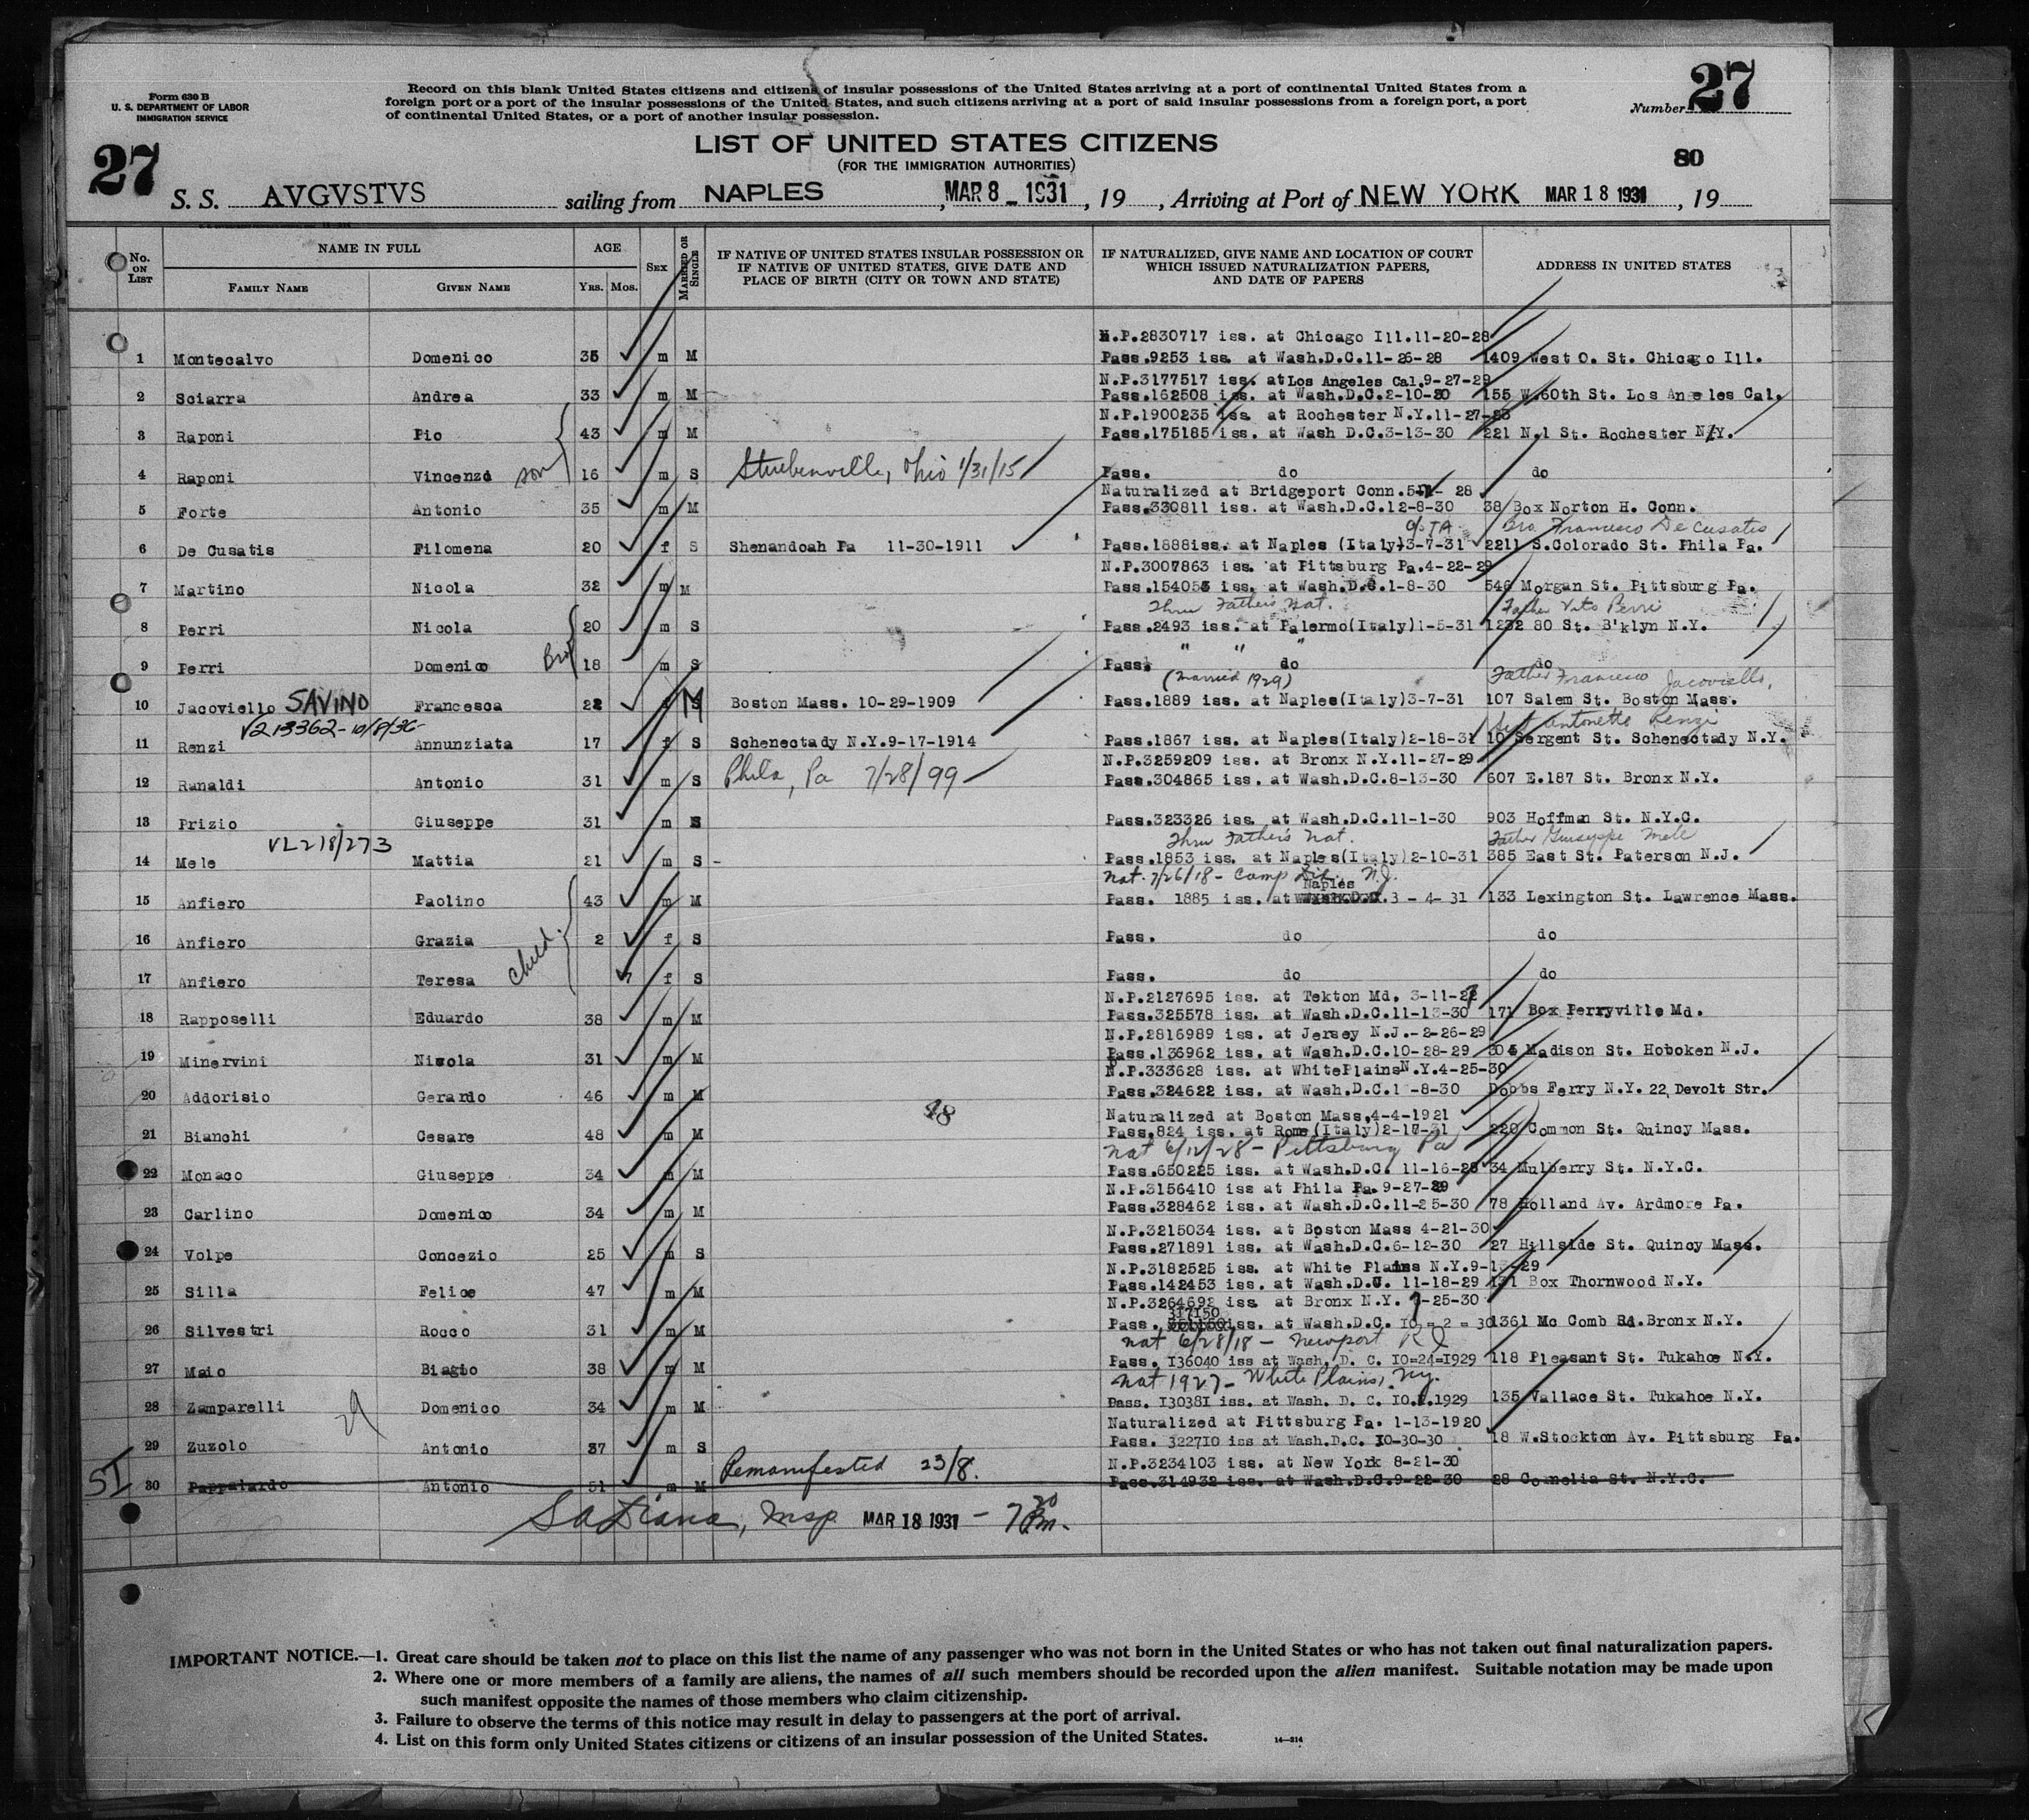 Form 630 B
U. S. DEPARTMENT OF LABOR
IMMIGRATION SERVICE
Record on this blank United States citizens and citizens of insular possessions of the United States arriving at a port of continental United States from a
foreign port or a port of the insular possessions of the United States, and such citizens arriving at a port of said insular possessions from a foreign port, a port
of continental United States, or a port of another insular possession.
Number 27
LIST OF UNITED STATES CITIZENS
(FOR THE IMMIGRATION AUTHORITIES)
80
27
S. S. AVGVSTVS sailing from NAPLES, MAR 8 - 1931, 19 , Arriving at Port of NEW YORK MAR 18 1931, 19
No. ON LIST
NAME IN FULL
FAMILY NAME
GIVEN NAME
AGE
YRS. MOS.
SEX
MARRIED OR SINGLE
IF NATIVE OF UNITED STATES INSULAR POSSESSION OR IF NATIVE OF UNITED STATES, GIVE DATE AND PLACE OF BIRTH (CITY OR TOWN AND STATE)
IF NATURALIZED, GIVE NAME AND LOCATION OF COURT WHICH ISSUED NATURALIZATION PAPERS, AND DATE OF PAPERS
ADDRESS IN UNITED STATES
N.P.2830717 iss. at Chicago Ill.11-20-28
1 Montecalvo Domenico 35 m M Pass.9253 iss. at Wash.D.C.11-26-28 1409 West O. St. Chicago Ill.
N.P.3177517 iss. at Los Angeles Cal.9-27-29
2 Sciarra Andrea 33 m M Pass.162508 iss. at Wash.D.C.2-10-30 155 W.60th St. Los Angeles Cal.
N.P.1900235 iss. at Rochester N.Y.11-27-23
3 Raponi Pio 43 m M Pass.175185 iss. at Wash D.C.3-13-30 221 N.1 St. Rochester N.Y.
4 Raponi Vincenzo son 16 m S Stuebenville, Ohio 1/31/15 Pass. do do
Naturalized at Bridgeport Conn. 28
5 Forte Antonio 35 m M Pass.330811 iss. at Wash.D.C.12-8-30 38 Box Norton H. Conn.
Bro Francesco De Cusatis
6 De Cusatis Filomena 20 f S Shenandoah Pa 11-30-1911 Pass.1888iss. at Naples (Italy)3-7-31 2211 S.Colorado St. Phila Pa.
N.P.3007863 iss. at Pittsburg Pa.4-22-29
7 Martino Nicola 32 m M Pass.154053 iss. at Wash.D.C.1-8-30 546 Morgan St. Pittsburg Pa.
Thru Father's Nat. Father Vito Perri
8 Perri Nicola 20 m S Pass.2493 iss. at Palermo(Italy)1-5-31 1232 80 St. B'klyn N.Y.
Bro
9 Perri Domenico 18 m S Pass. " " do " do
(married 1929) Father Francesco Jacoviello,
10 Jacoviello SAVINO Francesca 22 f M Boston Mass. 10-29-1909 Pass.1889 iss. at Naples(Italy)3-7-31 107 Salem St. Boston Mass.
V213362-10/8/36- Antonette Renzi
11 Renzi Annunziata 17 f S Schenectady N.Y.9-17-1914 Pass.1867 iss. at Naples(Italy)2-18-31 10 Sergent St. Schenectady N.Y.
N.P.3259209 iss. at Bronx N.Y.11-27-29
12 Runaldi Antonio 31 m S Phila, Pa 7/28/99 Pass.304865 iss. at Wash.D.C.8-13-30 607 E.187 St. Bronx N.Y.
13 Prizio Giuseppe 31 m S Pass.323326 iss. at Wash.D.C.11-1-30 903 Hoffman St. N.Y.C.
VL218/273 Thru Father's Nat. Father Giuseppe Mele
14 Mele Mattia 21 m S - Pass.1853 iss. at Naples(Italy)2-10-31 385 East St. Paterson N.J.
Nat. 7/26/18 - Camp Dix N.J.
Naples
15 Anfiero Paolino 43 m M Pass. 1885 iss. at 3 - 4- 31 133 Lexington St. Lawrence Mass.
16 Anfiero Grazia 2 f S Pass. do do
child.
17 Anfiero Teresa 7 f S Pass. do do
N.P.2127695 iss. at Tekton Md. 3-11-22
18 Rapposelli Eduardo 38 m M Pass.325578 iss. at Wash.D.C.11-13-30 171 Box Perryville Md.
N.P.2816989 iss. at Jersey N.J.-2-26-29
19 Minervini Nicola 31 m M Pass.136962 iss. at Wash.D.C.10-28-29 304 Madison St. Hoboken N.J.
N.P.333628 iss. at WhitePlainsN.Y.4-25-30
20 Addorisio Gerardo 46 m M Pass.324622 iss. at Wash.D.C.1 -8-30 Dobbs Ferry N.Y. 22 Devolt Str.
48 Naturalized at Boston Mass.4-4-1921
21 Bianchi Cesare 48 m M Pass.824 iss. at Rome (Italy)2-17-31 220 Common St. Quincy Mass.
Nat 6/12/28 - Pittsburg Pa
22 Monaco Giuseppe 34 m M Pass.650225 iss. at Wash.D.C. 11-16-28 34 Mulberry St. N.Y.C.
N.P.3156410 iss at Phila Pa. 9-27-29
23 Carlino Domenico 34 m M Pass.328462 iss. at Wash.D.C.11-25-30 78 Holland Av. Ardmore Pa.
N.P.3215034 iss. at Boston Mass 4-21-30
24 Volpe Concezio 25 m S Pass.271891 iss. at Wash.D.C.6-12-30 27 Hillside St. Quincy Mass.
N.P.3182525 iss. at White Plains N.Y.9-1 -29
25 Silla Felice 47 m M Pass.142453 iss. at Wash.D.C. 11-18-29 131 Box Thornwood N.Y.
N.P.3264692 iss. at Bronx N.Y. -25-30
317150
26 Silvestri Rocco 31 m M Pass. iss. at Wash.D.C. 10 = 2 = 30 1361 Mc Comb Rd.Bronx N.Y.
Nat 6/28/18 - Newport R I
27 Maio Biagio 38 m M Pass. 136040 iss at Wash. D. C. 10=24=1929 118 Pleasant St. Tukahoe N.Y.
Nat 1927 - White Plains, N.Y.
28 Zamparelli Domenico 34 m M Pass. 130381 iss. at Wash. D. C. 10. .1929 135 Vallace St. Tukahoe N.Y.
Naturalized at Pittsburg Pa. 1-13-1920
29 Zuzolo Antonio 37 m S Pass. 322710 iss at Wash.D.C. 10-30-30 18 W.Stockton Av. Pittsburg Pa.
Remanifested 23/8. N.P.3234103 iss. at New York 8-21-30
SI 30 Pappalardo Antonio 51 m M Pass.314932 iss. at Wash.D.C.9-22-30 28 Cornelia St. N.Y.C.
Insp. MAR 18 1931 - 7 30 Pm.
IMPORTANT NOTICE.—1. Great care should be taken not to place on this list the name of any passenger who was not born in the United States or who has not taken out final naturalization papers.
2. Where one or more members of a family are aliens, the names of all such members should be recorded upon the alien manifest. Suitable notation may be made upon
such manifest opposite the names of those members who claim citizenship.
3. Failure to observe the terms of this notice may result in delay to passengers at the port of arrival.
4. List on this form only United States citizens or citizens of an insular possession of the United States.
14—314